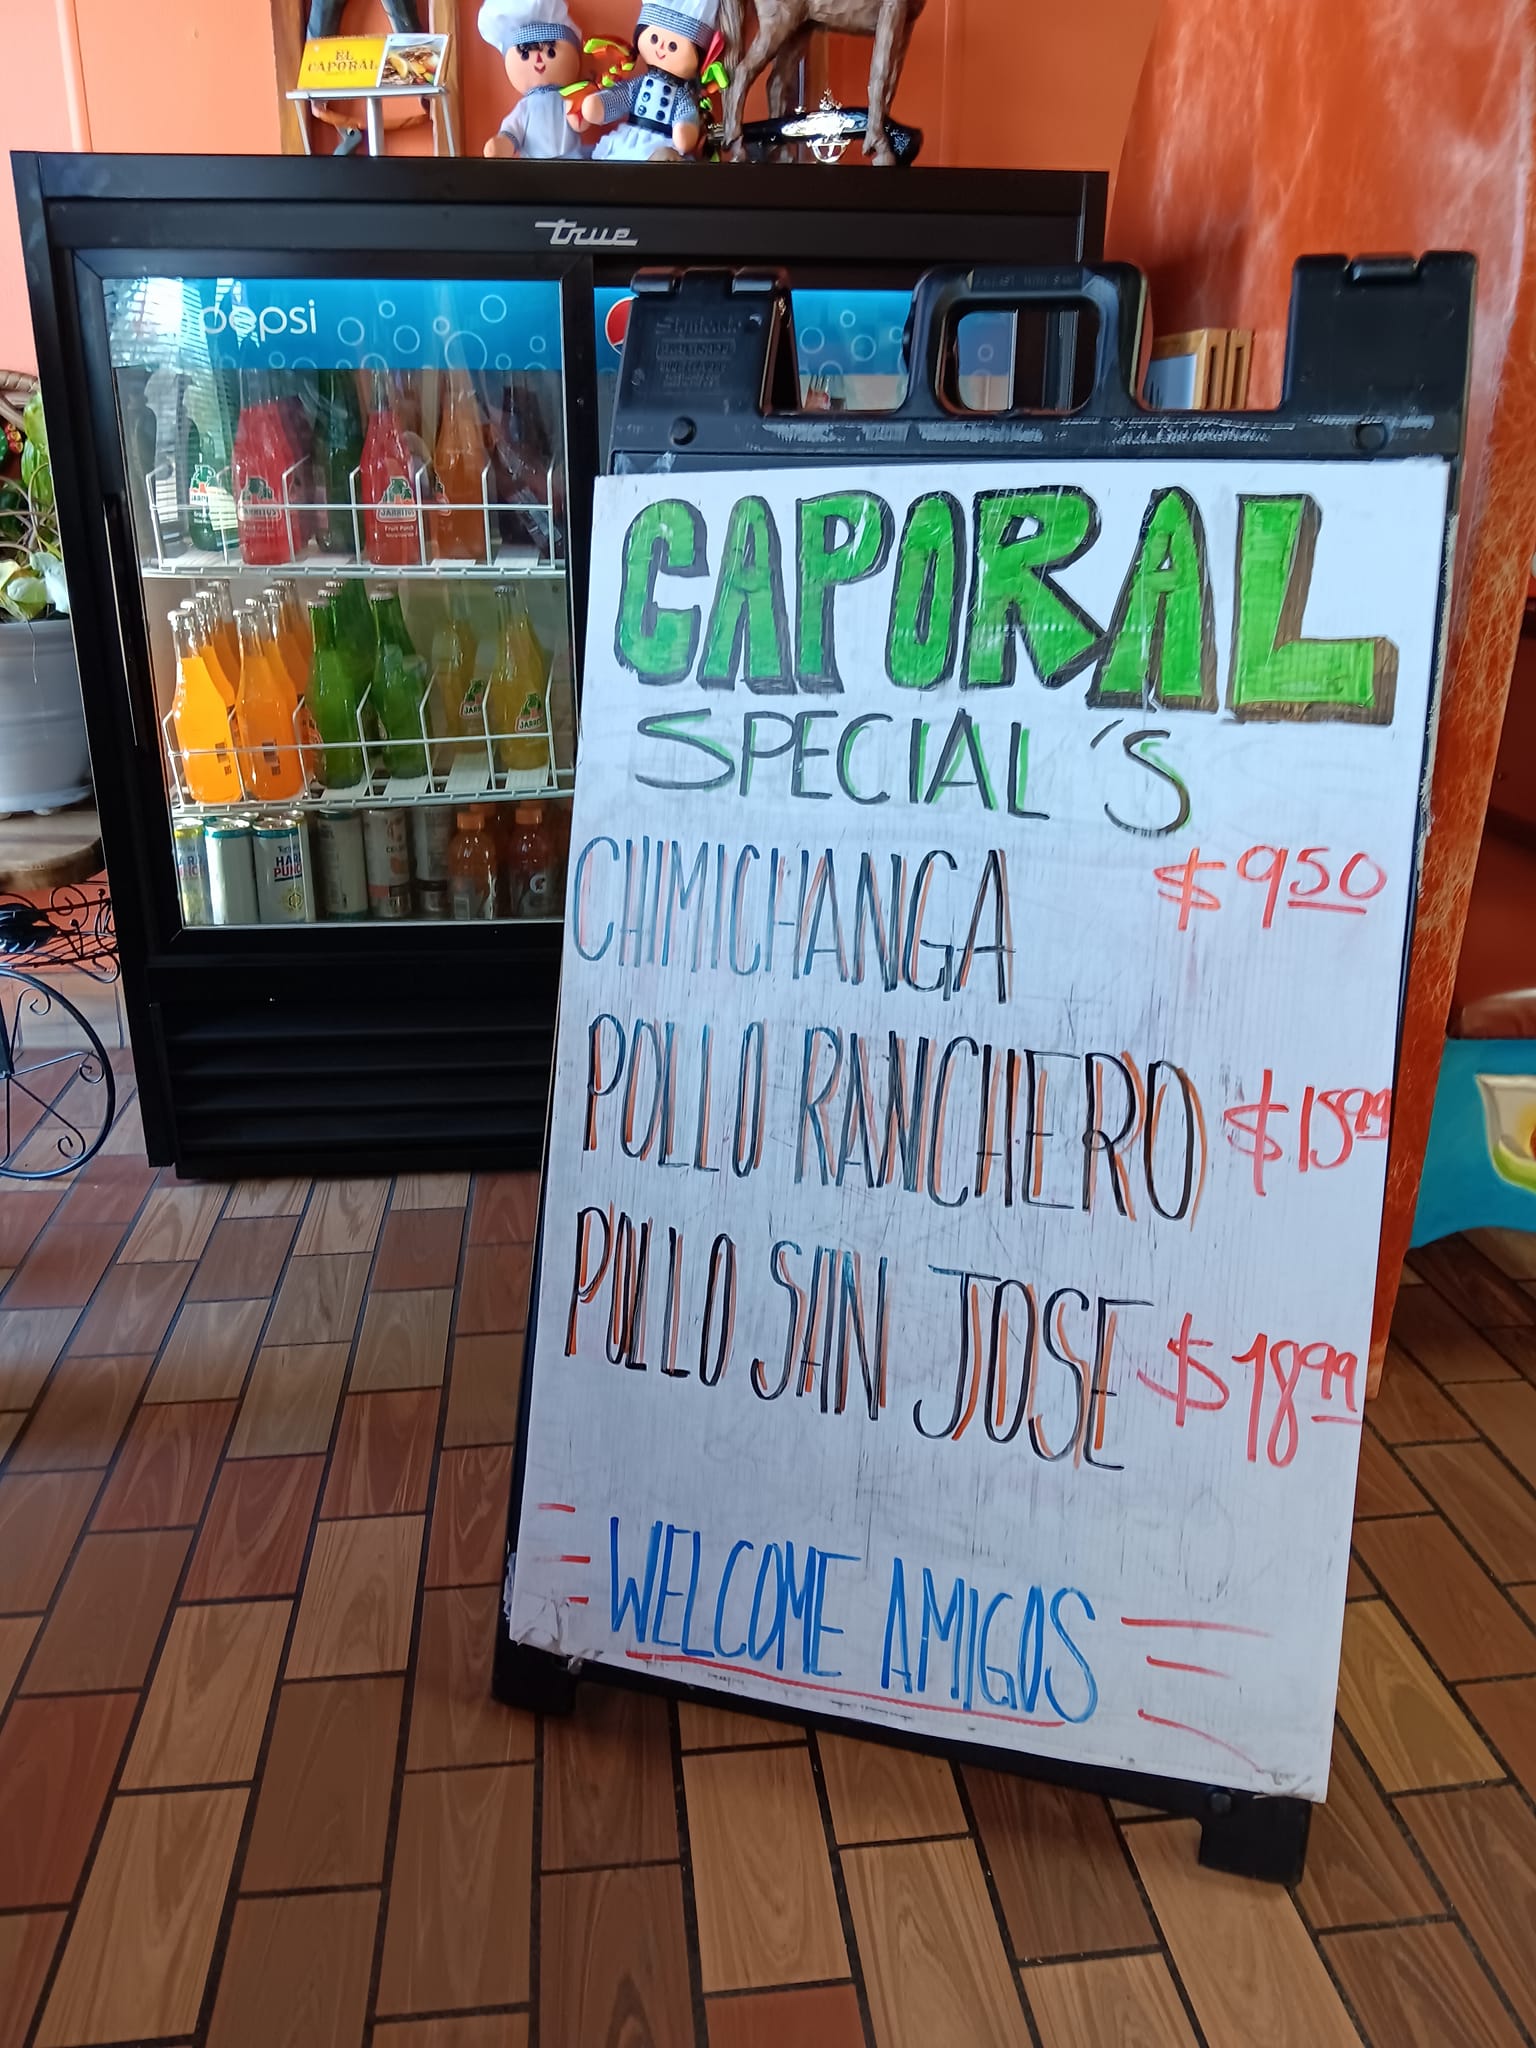 EL
CAPORAL
true
pepsi
JARRITOS
Fruit Punch
HARD
PUNCH
CAPORAL
SPECIAL'S
CHIMICHANGA $9.50
POLLO RANCHERO $15.99
POLLO SAN JOSE $18.99
WELCOME AMIGOS